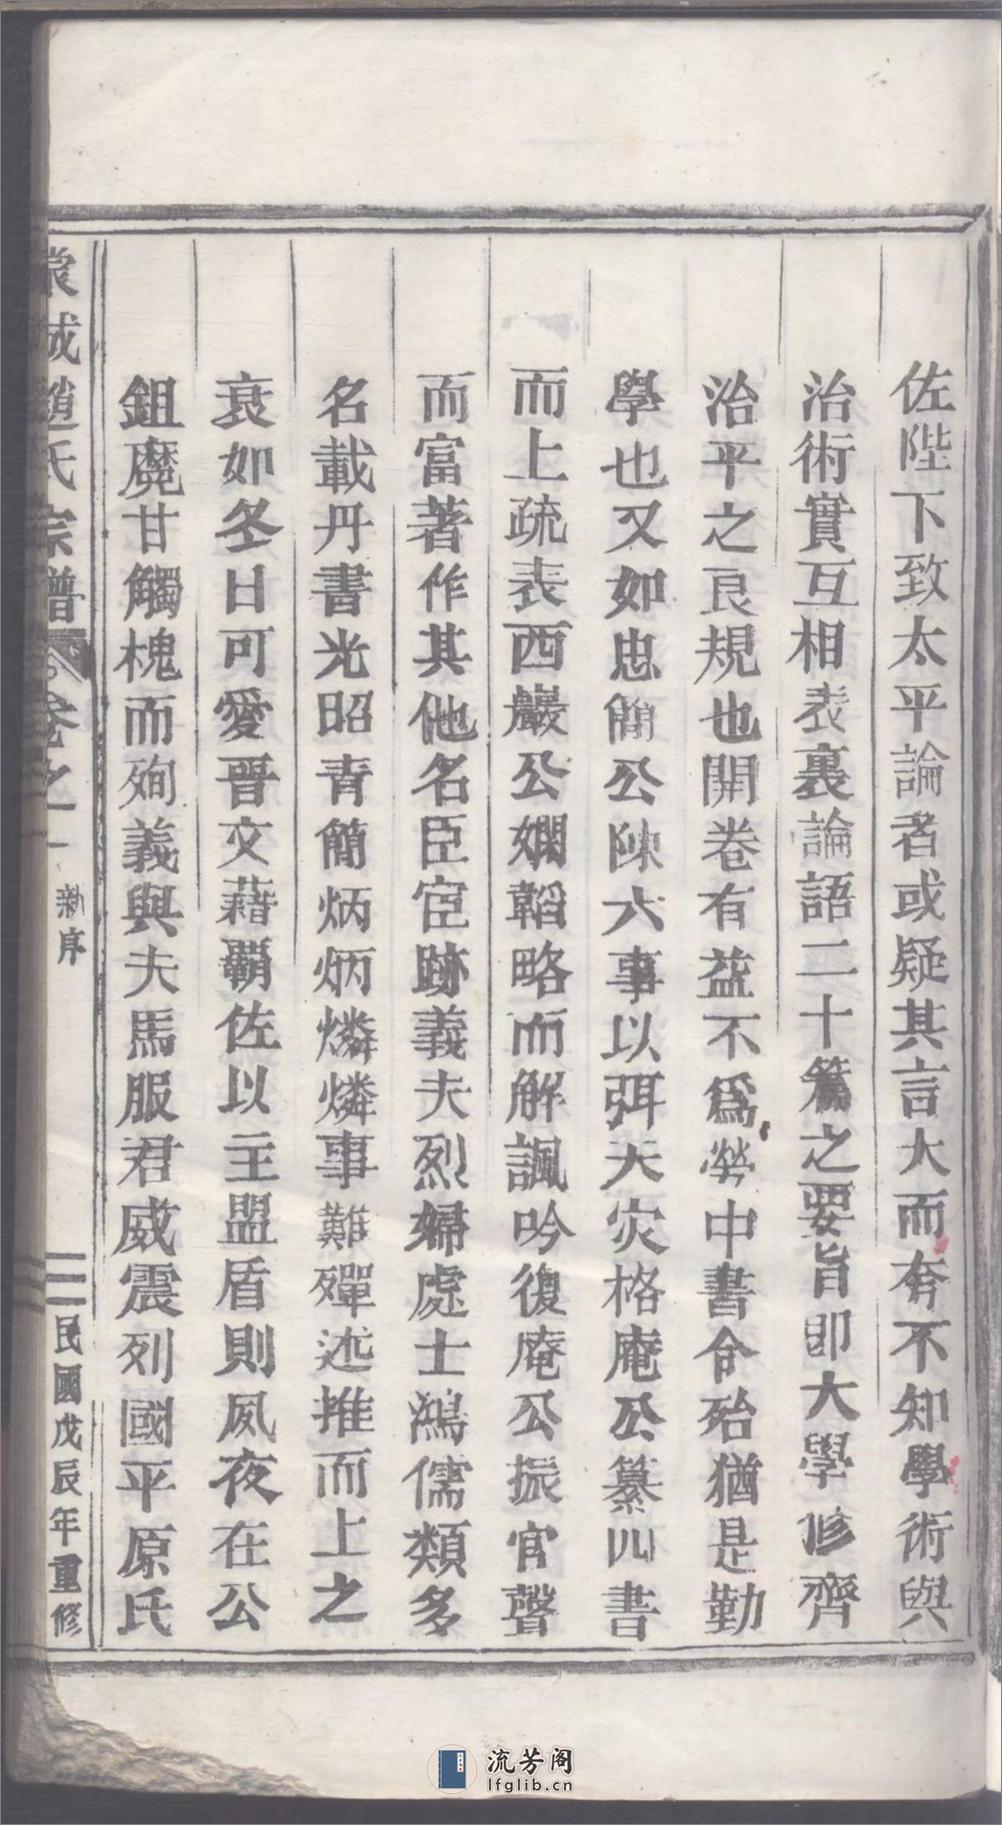 佐陛下致太平論者或疑其言大而夸不知學術與
治術實互相表裏論語二十篇之要旨即大學修齊
治平之良規也開卷有益不為勞中書令殆猶是勤
學也又如忠簡公陳六事以弭天灾格庵公纂四書
而上疏表西巖公嫻韜略而解諷吟復庵公振官聲
而富著作其他名臣宦跡義夫烈婦處士鴻儒類多
名載丹書光昭青簡炳炳燐燐事難殫述推而上之
衰如冬日可愛晋文藉覇佐以主盟盾則夙夜在公
鉏麑甘觸槐而殉義與夫馬服君威震列國平原氏
城趙氏宗譜 卷之一 新序 二 民國戊辰年重修
流芳阁
lfglib.cn